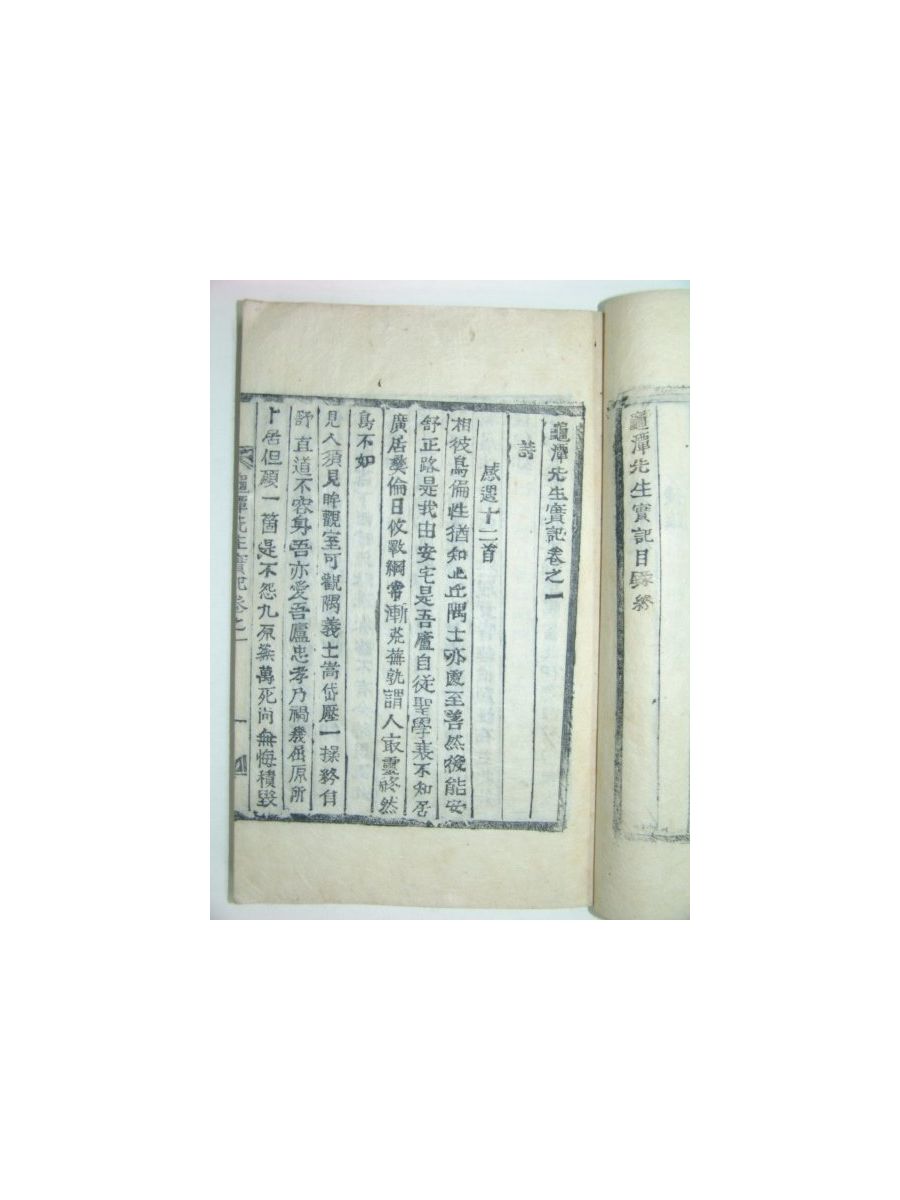 龜潭先生實記目錄終
龜潭先生實記卷之一
詩
感遇十二首
相彼鳥偏性猶知止丘隅士亦處至善然後能安
舒正路是我由安宅是吾廬自從聖學衰不知居
廣居彝倫日攸斁綱常漸荒蕪孰謂人㝡靈終然
鳥不如
見人須見眸觀室可觀隅義士嵩岱壓一操終自
舒直道不容身吾亦愛吾廬忠孝乃禍幾屈原所
卜居但願一箇是不怨九原蕪萬死尚無悔積毀
龜潭先生實記卷之一 一